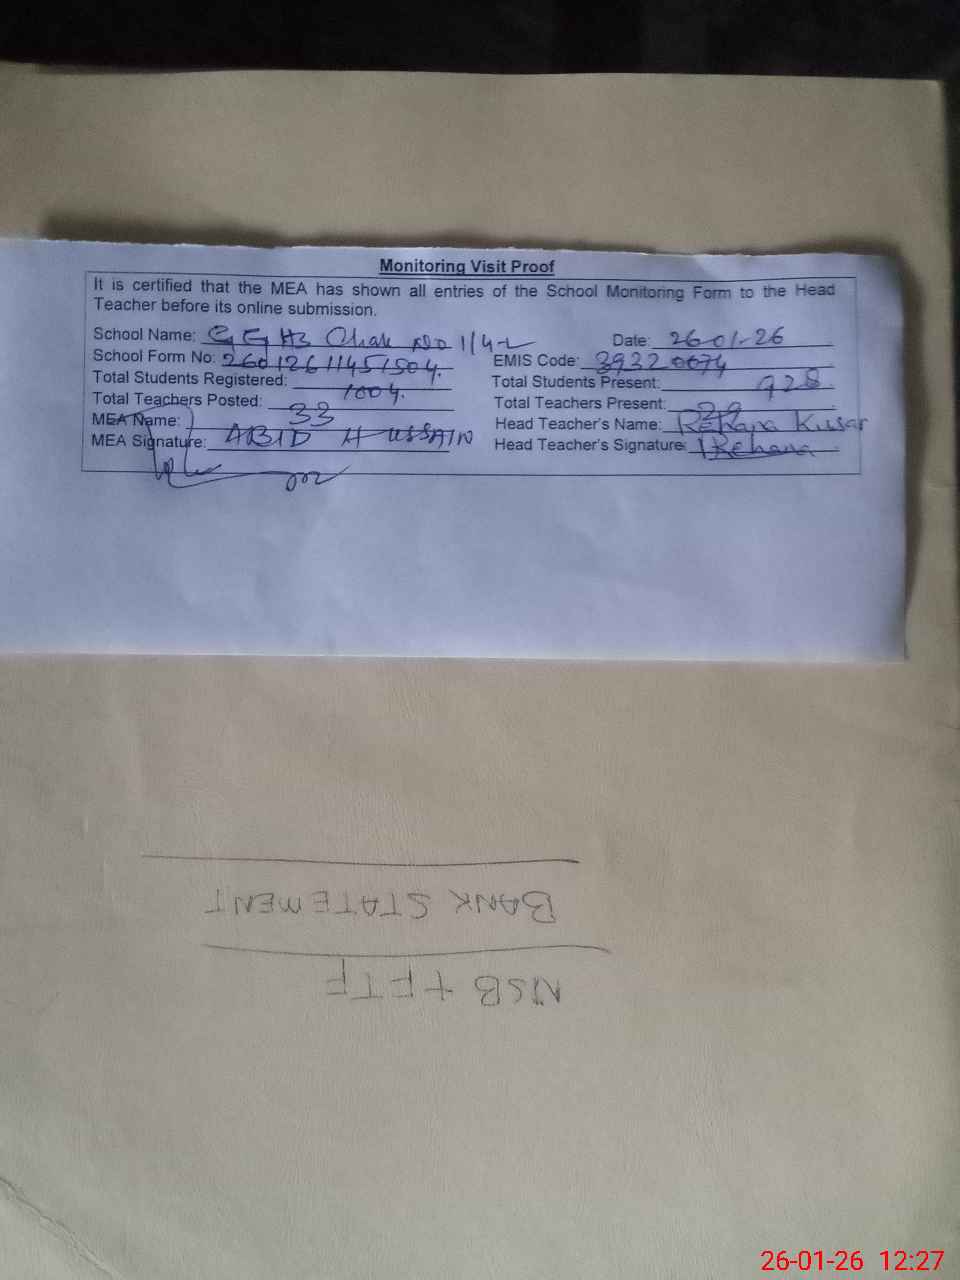 Monitoring Visit Proof
It is certified that the MEA has shown all entries of the School Monitoring Form to the Head
Teacher before its online submission.
School Name: GGHS Chak No 1/4-L Date: 26-01-26
School Form No: 26012611451504. EMIS Code: 39320074
Total Students Registered: 1004. Total Students Present: 928
Total Teachers Posted: 33 Total Teachers Present: 29
MEA Name: ABID HUSSAIN Head Teacher's Name: Rehana Kusar
MEA Signature: Head Teacher's Signature: Rehana
BANK STATEMENT
NSB + FTF
26-01-26 12:27